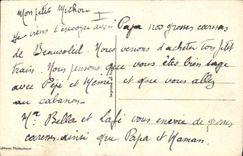 Mon petit Michou
Je viens t'envoyer avec Papa nos grosses caresses
de Beausoleil. Nous venons d'acheter ton ptit
train. Nous pensons que vous êtes bien sage
avec Pépé et Mémé et que vous allez
au cabanon.
Mme Bella et Lafé vous envoie de grosses
caresses ainsi que Papa et Maman.